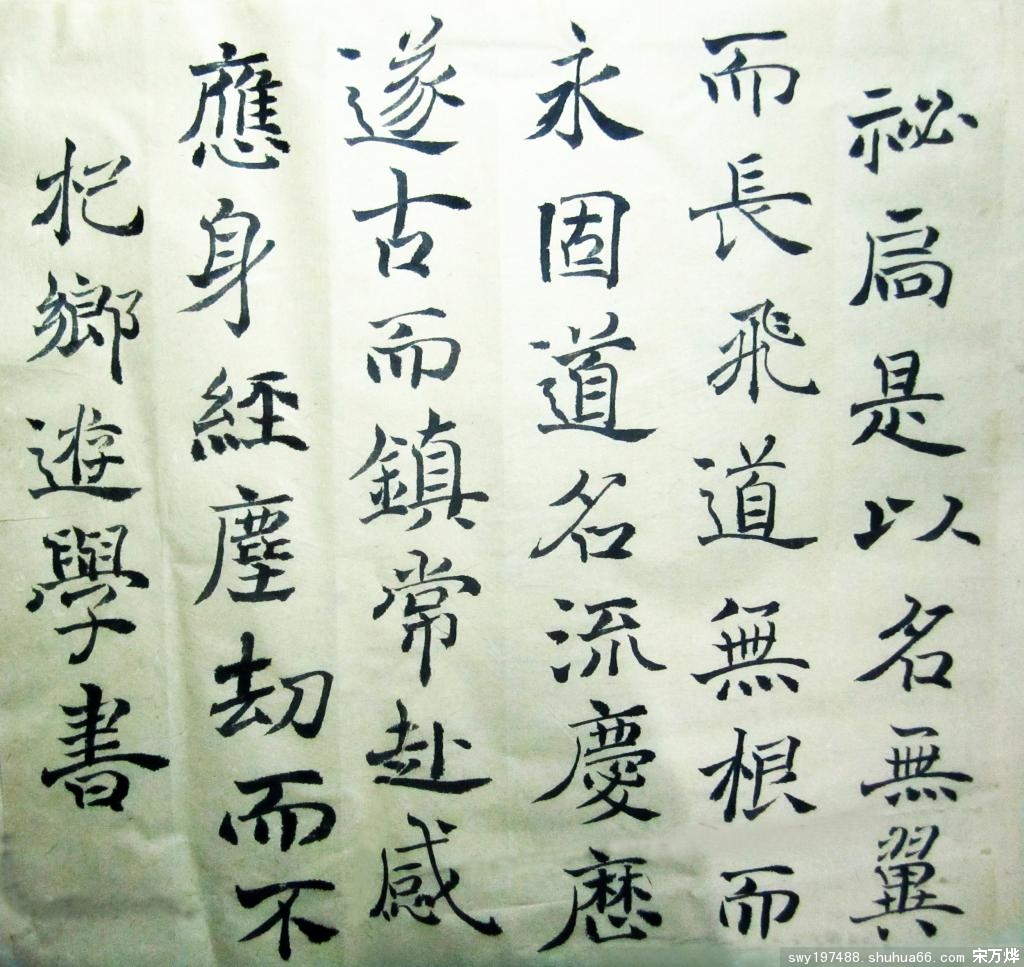 祕扃是以名無翼
而長飛道無根而
永固道名流慶歷
遂古而鎮常赴感
應身經塵劫而不
杞鄉遊學書
swy197488.shuhua66.com 宋万烨